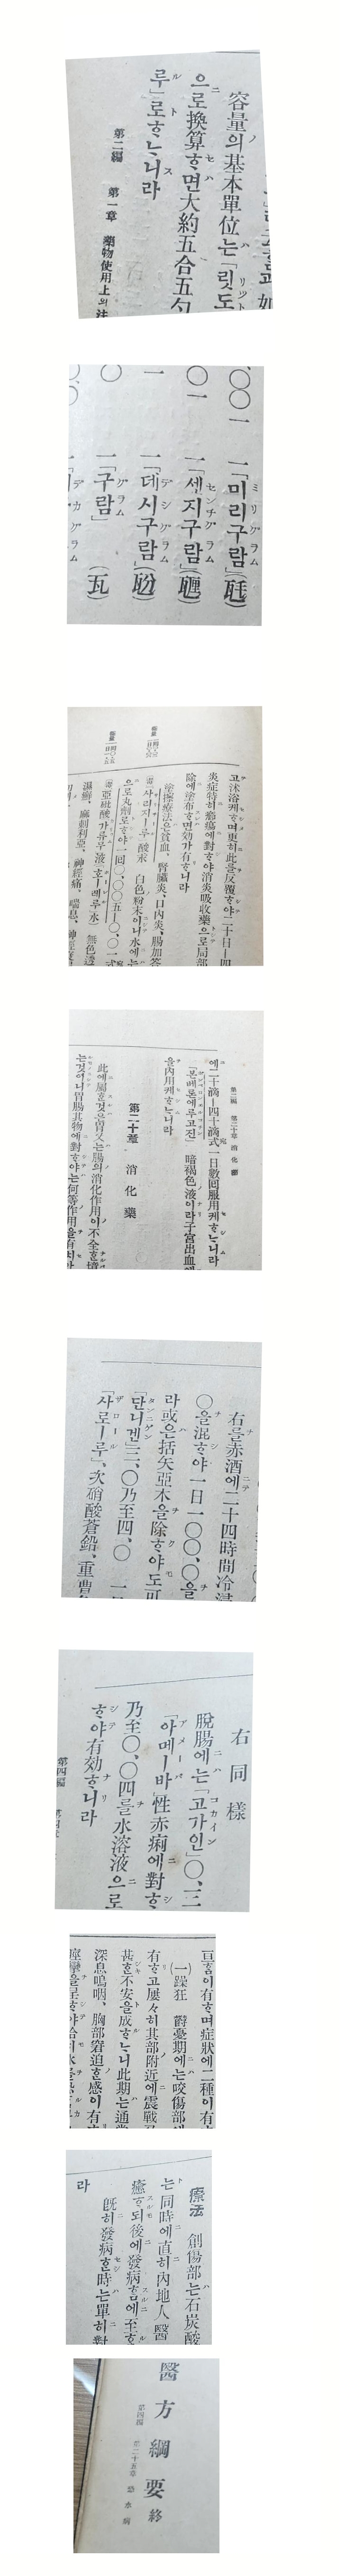 容量의基本單位는「릿도
으로換算ᄒᆞ면大約五合五勺
루」로ᄒᆞᄂᆞ니라
第二編 第一章 藥物使用上의注
一「미리구람」(瓱)
〇一 一「센지구람」(甅)
一 一「데시구람」(瓰)
〇 一「구람」(瓦)
고沐浴케ᄒᆞ며更히此를反覆ᄒᆞ야二十日―四
炎症特히
除에塗布ᄒᆞ면効가有ᄒᆞ니라
塗擦療法은貧血、腎臟炎、口內炎、腸加答
사리지ー루酸水 白色粉末이니水에는
으로丸劑로ᄒᆞ야一回〇、〇〇五―〇、〇一式
亞砒酸가류무液(호ー레루水) 無色透
濕癬、麻刺利亞、神經痛、喘息、神經衰
第二編 第二十章 消化藥
에二十滴―四十滴式一日數回服用케ᄒᆞᄂᆞ니라
暗褐色液이라子宮出血에
을內用케ᄒᆞᄂᆞ니라
第二十章 消化藥
此에屬ᄒᆞᆫ것은胃又는腸의消化作用이不全ᄒᆞᆫ境
는것이니胃腸其物에對ᄒᆞ야는何等作用을有치아
右를赤酒에二十四時間冷浸
〇을混ᄒᆞ야一日一〇〇、〇을
라或은括矢亞木을除ᄒᆞ야도可
「단니겐」三、〇乃至四、〇
「사로ー루」、次硝酸蒼鉛、重曹
右同樣
脫腸에는「고가인」〇、三
「아메ー바」性赤痢에對ᄒᆞ
乃至〇、〇四를水溶液으로
ᄒᆞ야有効ᄒᆞ니라
第四編
亘홈이有ᄒᆞ며症狀에二種이有
(一)躁狂 欝憂期에는咬傷部에
有ᄒᆞ고屢々히其部附近에震戰
甚ᄒᆞᆫ不安을成ᄒᆞᄂᆞ니此期는通常
深息嗚咽、胸部窘迫ᄒᆞᆫ感이有
痙攣을呈ᄒᆞ야給水
療法 創傷部는石炭酸
는同時에直히內地人醫
癒ᄒᆞ되後에發病홈에至ᄒᆞ
旣히發病ᄒᆞᆫ時는單히對
라
醫方綱要 終
第四編 第二十五章 恐水病